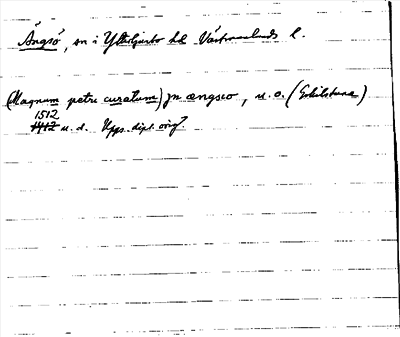 Ängsö, sn i Yttertjurbo hd Västmanlands l.
(Magnum petri curatum) jn ængsco, u. o. (Eskilstuna)
1512
1412 u. d. Upps. dipl. orig.